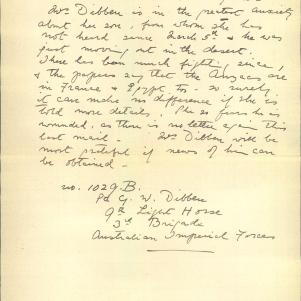 Mrs Dibben is in the greatest anxiety
about her son, from whom she has
not heard since March 5th & he was
just moving out in the desert.
There has been much fighting, since,
& the papers say that the Anzacs are
in France & Egypt, too - so surely
it can make no difference if she is
told more details. She fears he is
wounded, as there is no letter again this
last mail. Mrs Dibben will be
most grateful if news of him can
be obtained -
no. 1029.B.
Pte G. W. Dibben
9th Light Horse
3rd Brigade
Australian Imperial Forces